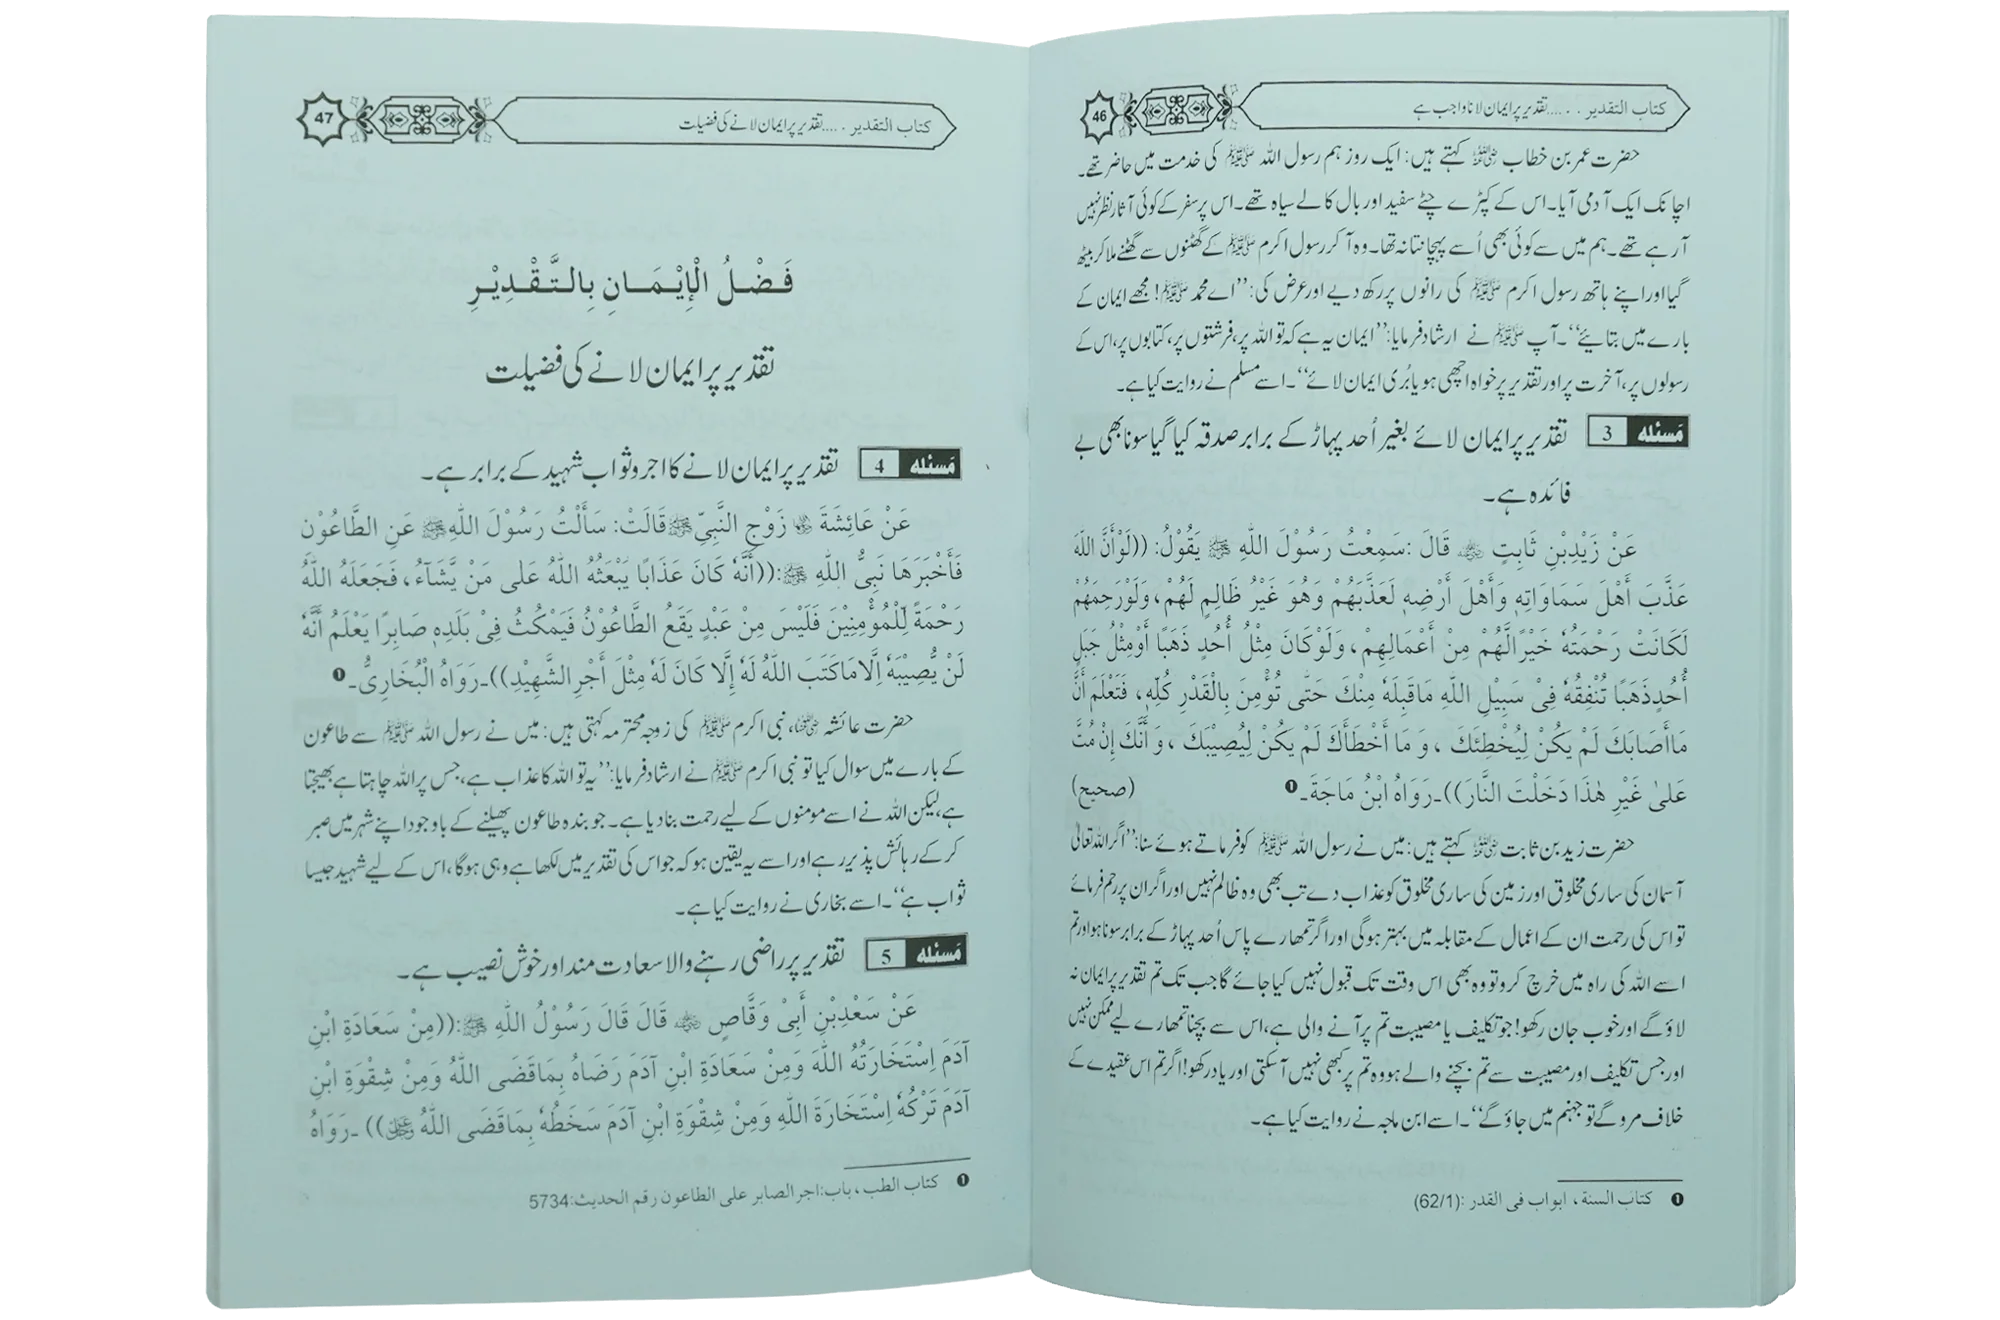 46 کتاب التقدیر . . ....تقدیر پر ایمان لانا واجب ہے
حضرت عمر بن خطاب رضی اللہ عنہ کہتے ہیں: ایک روز ہم رسول اللہ ﷺ کی خدمت میں حاضر تھے۔
اچانک ایک آدمی آیا۔ اس کے کپڑے چٹے سفید اور بال کالے سیاہ تھے۔ اس پر سفر کے کوئی آثار نظر نہیں
آرہے تھے۔ ہم میں سے کوئی بھی اُسے پہچانتا نہ تھا۔ وہ آ کر رسول اکرم ﷺ کے گھٹنوں سے گھٹنے ملا کر بیٹھ
گیا اور اپنے ہاتھ رسول اکرم ﷺ کی رانوں پر رکھ دیے اور عرض کی: ’’اے محمد ﷺ! مجھے ایمان کے
بارے میں بتائیے‘‘۔ آپ ﷺ نے ارشاد فرمایا: ’’ایمان یہ ہے کہ تو اللہ پر، فرشتوں پر، کتابوں پر، اس کے
رسولوں پر، آخرت پر اور تقدیر پر خواہ اچھی ہو یا بُری ایمان لائے‘‘۔ اسے مسلم نے روایت کیا ہے۔
مَسئله 3 تقدیر پر ایمان لائے بغیر اُحد پہاڑ کے برابر صدقہ کیا گیا سونا بھی بے
فائدہ ہے۔
عَنْ زَیْدِبْنِ ثَابِتٍ رضی اللہ عنہ قَالَ :سَمِعْتُ رَسُوْلَ اللهِ ﷺ یَقُوْلُ: ((لَوْأَنَّ اللهَ
عَذَّبَ أَهْلَ سَمَاوَاتِهٖ وَأَهْلَ أَرْضِهٖ لَعَذَّبَهُمْ وَهُوَ غَیْرُ ظَالِمٍ لَهُمْ، وَلَوْرَحِمَهُمْ
لَکَانَتْ رَحْمَتُهٗ خَیْرًالَّهُمْ مِنْ أَعْمَالِهِمْ، وَلَوْکَانَ مِثْلُ أُحُدٍ ذَهَبًا أَوْمِثْلُ جَبَلِ
أُحُدٍذَهَبًا تُنْفِقُهٗ فِیْ سَبِیْلِ اللهِ مَاقَبِلَهٗ مِنْكَ حَتّٰی تُؤْمِنَ بِالْقَدْرِ کُلِّهٖ، فَتَعْلَمَ أَنَّ
مَاأَصَابَكَ لَمْ یَکُنْ لِیُخْطِئَكَ ، وَ مَا أَخْطَأَكَ لَمْ یَکُنْ لِیُصِیْبَكَ ، وَ أَنَّكَ إِنْ مُتَّ
عَلیٰ غَیْرِ هٰذَا دَخَلْتَ النَّارَ))۔رَوَاهُ ابْنُ مَاجَةَ۔❶ (صحیح)
حضرت زید بن ثابت رضی اللہ عنہ کہتے ہیں: میں نے رسول اللہ ﷺ کو فرماتے ہوئے سنا: ’’اگر اللہ تعالیٰ
آسمان کی ساری مخلوق اور زمین کی ساری مخلوق کو عذاب دے تب بھی وہ ظالم نہیں اور اگر ان پر رحم فرمائے
تو اس کی رحمت ان کے اعمال کے مقابلہ میں بہتر ہوگی اور اگر تمھارے پاس اُحد پہاڑ کے برابر سونا ہو اور تم
اسے اللہ کی راہ میں خرچ کرو تو وہ بھی اس وقت تک قبول نہیں کیا جائے گا جب تک تم تقدیر پر ایمان نہ
لاؤ گے اور خوب جان رکھو! جو تکلیف یا مصیبت تم پر آنے والی ہے، اس سے بچنا تمھارے لیے ممکن نہیں
اور جس تکلیف اور مصیبت سے تم بچنے والے ہو وہ تم پر کبھی نہیں آسکتی اور یاد رکھو! اگر تم اس عقیدے کے
خلاف مرو گے تو جہنم میں جاؤ گے‘‘۔ اسے ابن ماجہ نے روایت کیا ہے۔
❶ کتاب السنة ، ابواب فی القدر :(62/1)
47 کتاب التقدیر . ....تقدیر پر ایمان لانے کی فضیلت
فَضْلُ الْإِیْمَانِ بِالتَّقْدِیْرِ
تقدیر پر ایمان لانے کی فضیلت
مَسئله 4 تقدیر پر ایمان لانے کا اجر و ثواب شہید کے برابر ہے۔
عَنْ عَائِشَةَ رضی اللہ عنہا زَوْجِ النَّبِیِّ ﷺ قَالَتْ: سَأَلْتُ رَسُوْلَ اللهِ ﷺ عَنِ الطَّاعُوْنِ
فَأَخْبَرَهَا نَبِیُّ اللهِ ﷺ:((أَنَّهٗ کَانَ عَذَابًا یَبْعَثُهُ اللهُ عَلٰی مَنْ یَّشَآءُ، فَجَعَلَهُ اللهُ
رَحْمَةً لِّلْمُؤْمِنِیْنَ فَلَیْسَ مِنْ عَبْدٍ یَقَعُ الطَّاعُوْنُ فَیَمْکُثُ فِیْ بَلَدِهٖ صَابِرًا یَعْلَمُ أَنَّهٗ
لَنْ یُّصِیْبَهٗ اِلَّامَاکَتَبَ اللهُ لَهٗ إِلَّا کَانَ لَهٗ مِثْلَ أَجْرِ الشَّهِیْدِ))۔رَوَاهُ الْبُخَارِیُّ۔❶
حضرت عائشہ رضی اللہ عنہا، نبی اکرم ﷺ کی زوجہ محترمہ کہتی ہیں: میں نے رسول اللہ ﷺ سے طاعون
کے بارے میں سوال کیا تو نبی اکرم ﷺ نے ارشاد فرمایا: ’’یہ تو اللہ کا عذاب ہے، جس پر اللہ چاہتا ہے بھیجتا
ہے، لیکن اللہ نے اسے مومنوں کے لیے رحمت بنا دیا ہے۔ جو بندہ طاعون پھیلنے کے باوجود اپنے شہر میں صبر
کر کے رہائش پذیر رہے اور اسے یہ یقین ہو کہ جو اس کی تقدیر میں لکھا ہے وہی ہوگا، اس کے لیے شہید جیسا
ثواب ہے‘‘۔ اسے بخاری نے روایت کیا ہے۔
مَسئله 5 تقدیر پر راضی رہنے والا سعادت مند اور خوش نصیب ہے۔
عَنْ سَعْدِبْنِ أَبِیْ وَقَّاصٍ رضی اللہ عنہ قَالَ قَالَ رَسُوْلُ اللهِ ﷺ:((مِنْ سَعَادَةِ ابْنِ
آدَمَ اِسْتَخَارَتُهُ اللهَ وَمِنْ سَعَادَةِ ابْنِ آدَمَ رَضَاهُ بِمَاقَضَی اللهُ وَمِنْ شِقْوَةِ ابْنِ
آدَمَ تَرْکُهٗ اِسْتَخَارَةَ اللهِ وَمِنْ شِقْوَةِ ابْنِ آدَمَ سَخَطُهٗ بِمَاقَضَی اللهُ عزوجل)) ۔رَوَاهُ
❶ کتاب الطب ، باب:اجر الصابر علی الطاعون رقم الحدیث:5734